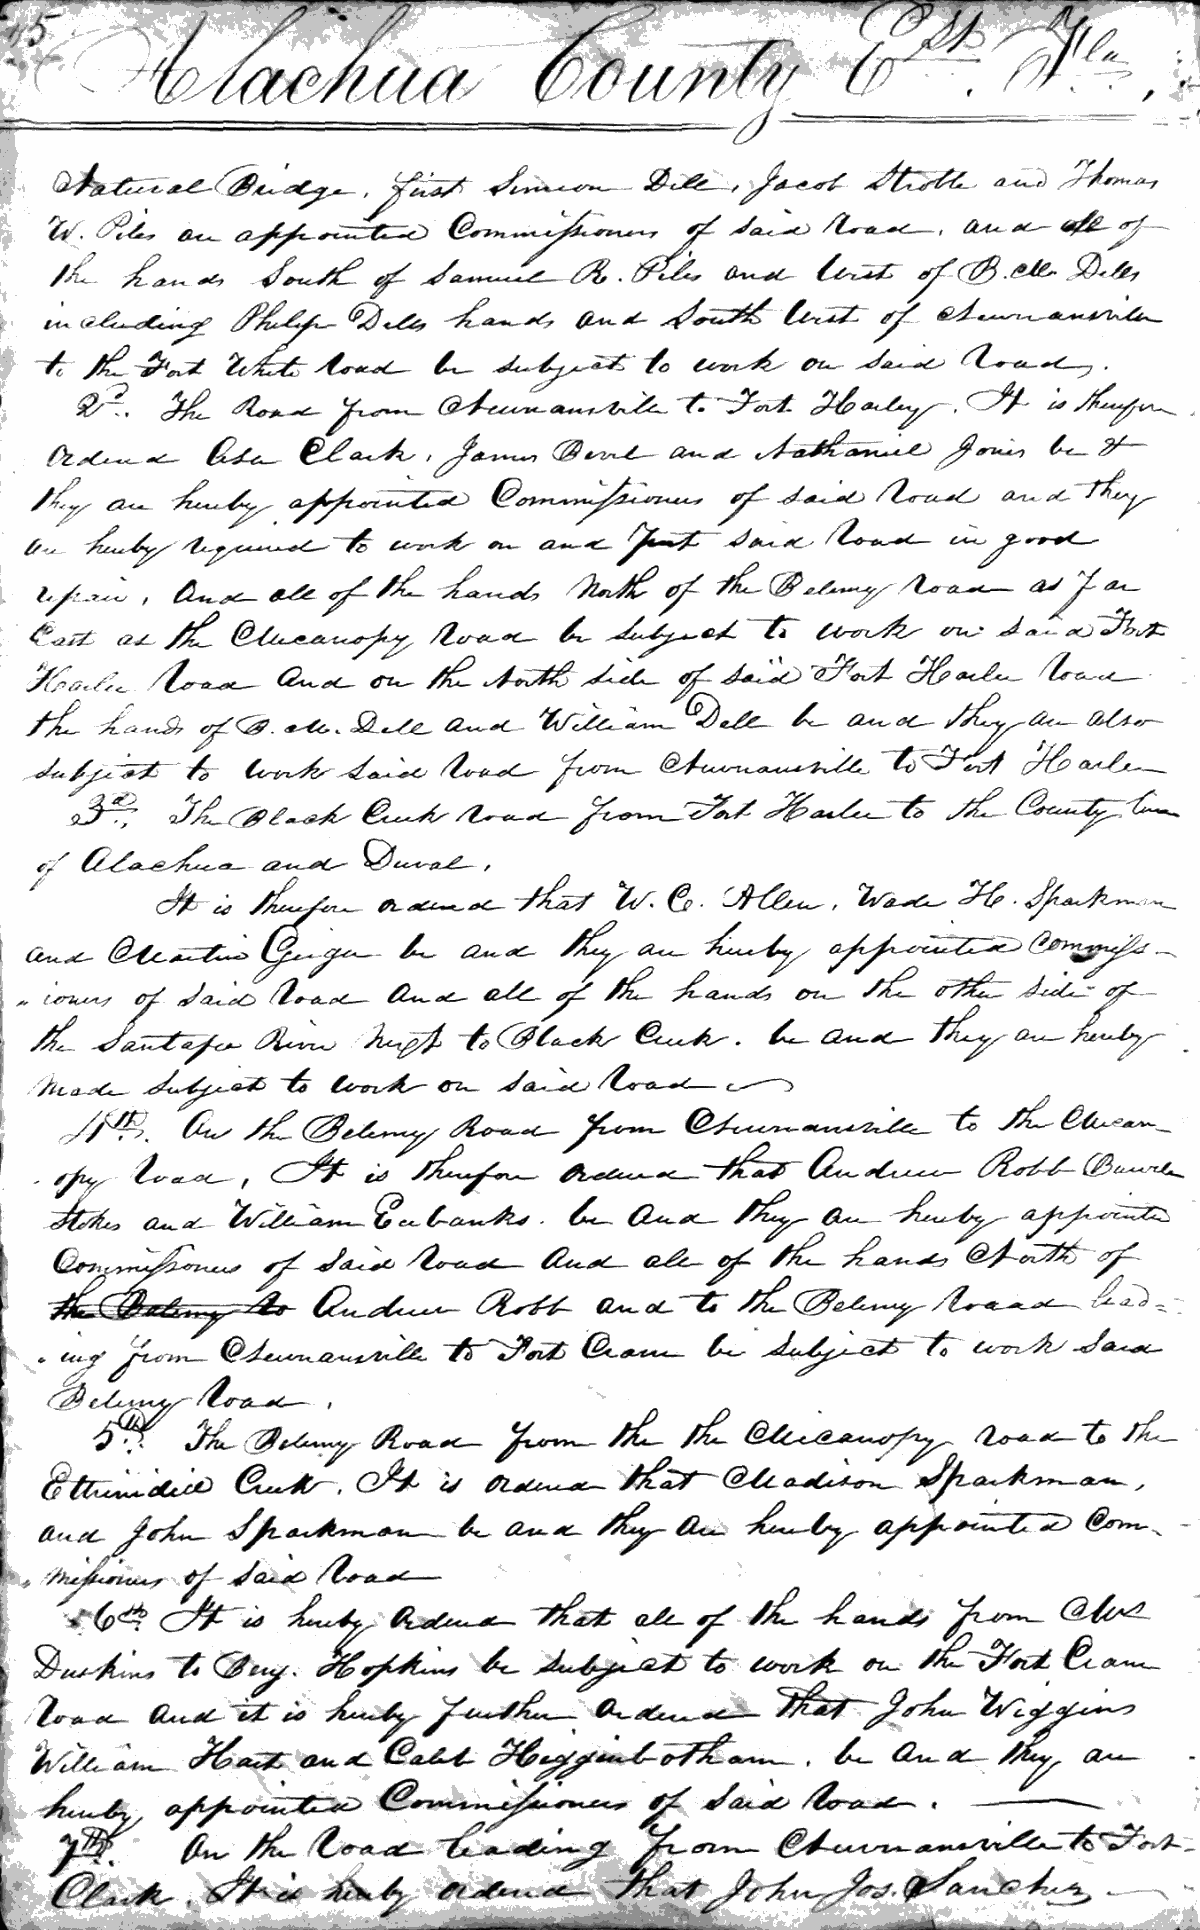 25
Alachua County Est. Fla.
Natural Bridge. first Simeon Dell, Jacob Stroble and Thomas
W. Piles are appointed Commissioners of said road. and all of
the hands South of Samuel R. Piles and West of B. M. Dells
including Philip Dells hands and South West of Newnansville
to the Fort White road be subject to work on said road.
2d. The Road from Newnansville to Fort Harley. It is therefore
ordered Asa Clark, James Bevil and Nathaniel Jones be &
they are hereby appointed Commissioners of said road and they
are hereby required to work on and put said road in good
repair, And all of the hands North of the Belemy road as far
East as the Micanopy road be subject to work on said Fort
Harlee road And on the North side of said Fort Harlee road
the hands of B. M. Dell and William Dell be and they are also
subject to work said road from Newnansville to Fort Harlee
3d. The Black Creek road from Fort Harlee to the County line
of Alachua and Duval.
It is therefore ordered that W. C. Allen, Wade H. Sparkman
and Martin Geiger be and they are hereby appointed Commiss-
"ioners of said road And all of the hands on the other side of
the Santafee River next to Black Creek. be and they are hereby
made subject to work on said road
4th. On the Belemy Road from Newnansville to the Mican-
opy road, It is therefore ordered that Andrew Robb
Stokes and William Eubanks. be And they are hereby appointed
Commissioners of said road And all of the hands North of
the Belemy to Andrew Robb and to the Belemy roaad lead=
"ing from Newnansville to Fort Crane be subject to work said
Belemy road.
5th. The Belemy Road from the the Micanopy road to the
Creek. It is ordered that Madison Sparkman,
and John Sparkman be and they are hereby appointed Com-
"missioners of said road
6th It is hereby ordered that all of the hands from Mrs
Duskins to Benj. Hopkins be subject to work on the Fort Crane
road and it is hereby further ordered that John Wiggins
William Hart and Caleb Higginbotham. be And they are
hereby appointed Commissioners of said road.
7th. On the road leading from Newnansville to Fort
Clark. It is hereby ordered that John Jos. Sanchez